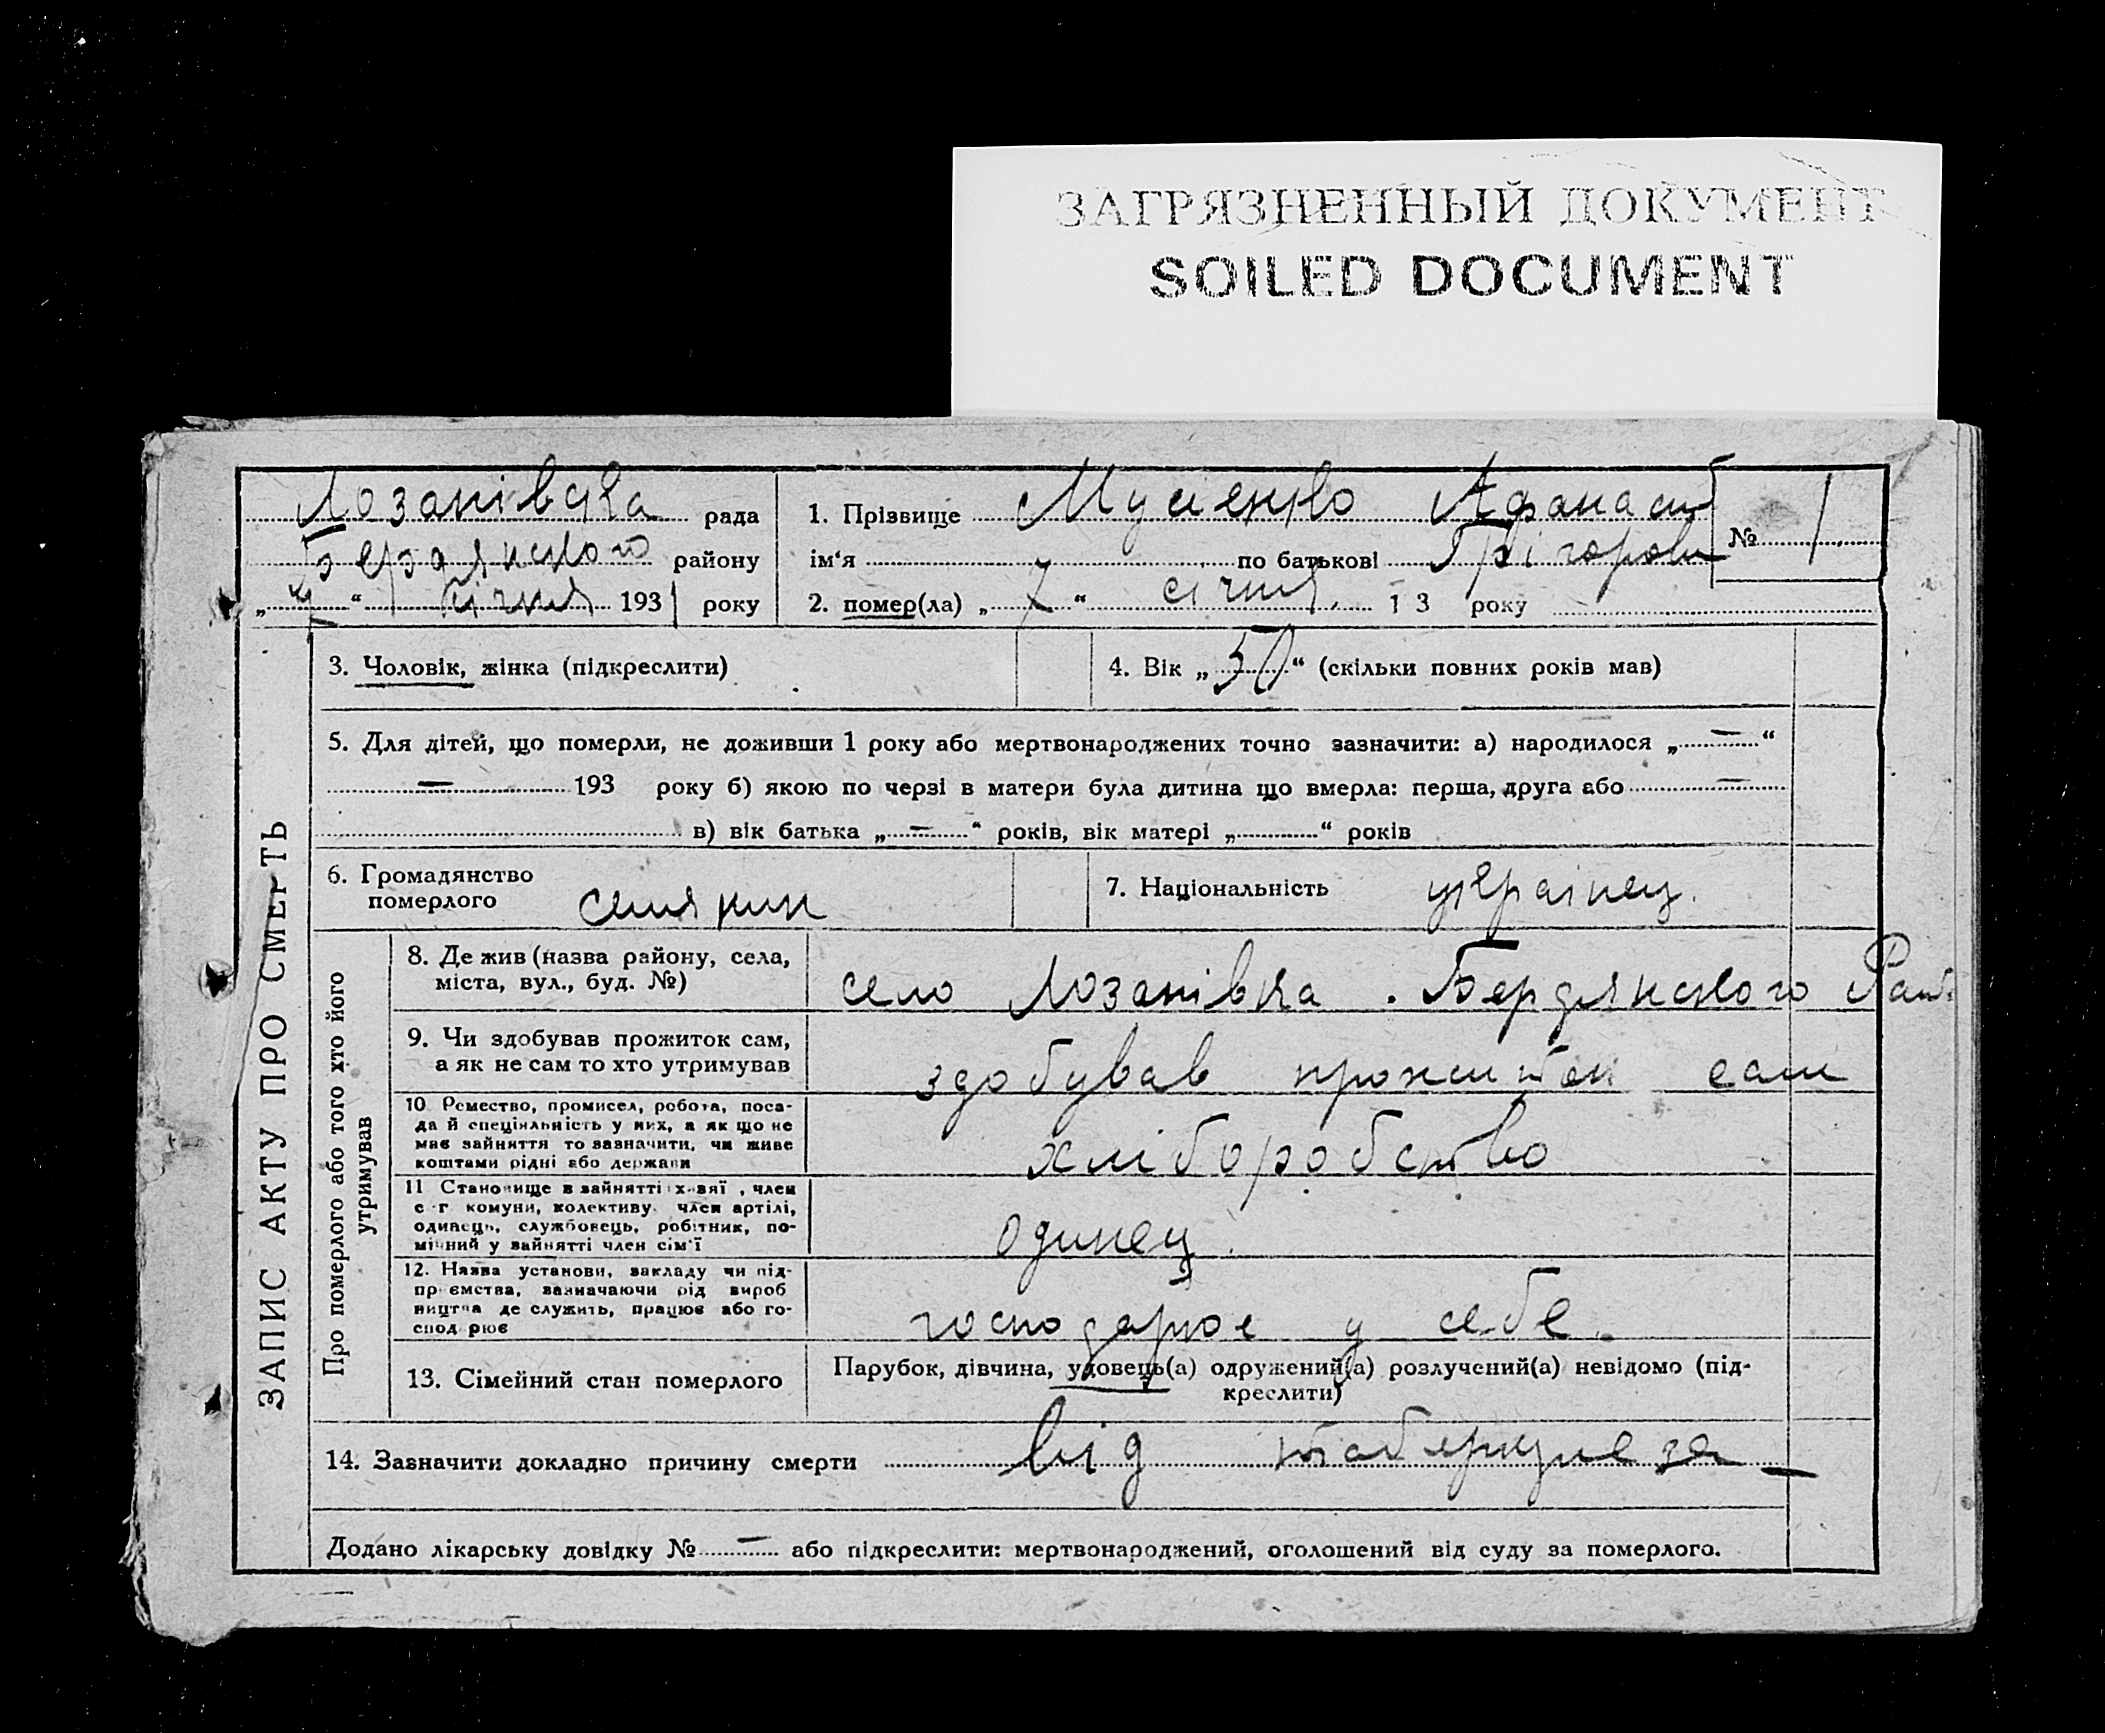 ЗАГРЯЗНЕННЫЙ ДОКУМЕНТ
SOILED DOCUMENT
ЗАПИС АКТУ ПРО СМЕРТЬ
Лозанівска рада
Бердянского району
„ “ січня 1931 року
1. Прізвище Мусіенко Афанасий
ім‘я по батькові Грігорови
№ 1.
2. помер(ла) „ 7 “ січня. 1 3 року
3. Чоловік, жінка (підкреслити)
4. Вік „ 50 “ (скільки повних років мав)
5. Для дітей, що померли, не доживши 1 року або мертвонароджених точно зазначити: а) народилося „ — “
— 193 року б) якою по черзі в матери була дитина що вмерла: перша, друга або —
в) вік батька „ — “ років, вік матері „ “ років
6. Громадянство
померлого селянин
7. Національність украінец.
Про померлого або того хто його
утримував
8. Де жив (назва району, села,
міста, вул., буд. №)
село Лозанівка . Бердянского Рай.
9. Чи здобував прожиток сам,
а як не сам то хто утримував
здобував прожиток сам
10 Ремество, промисел, робота, поса-
да й спеціяльність у них, а як що не
має зайняття то зазначити, чи живе
коштами рідні або держави
хліборобство
11 Становище в зайнятті х-зяї , член
с г комуни, колективу. член артілі,
одинець, службовець, робітник, по-
мічний у зайнятті член сім'ї
одинец.
12. Назва установи, закладу чи під-
приємства, зазначаючи рід вироб
ництва де служить, працює або го-
спод рює
господарює у себе.
13. Сімейний стан померлого
Парубок, дівчина, удовець(а) одружений(а) розлучений(а) невідомо (під-
креслити)
14. Зазначити докладно причину смерти від таберкулеза —
Додано лікарську довідку № — або підкреслити: мертвонароджений, оголошений від суду за померлого.